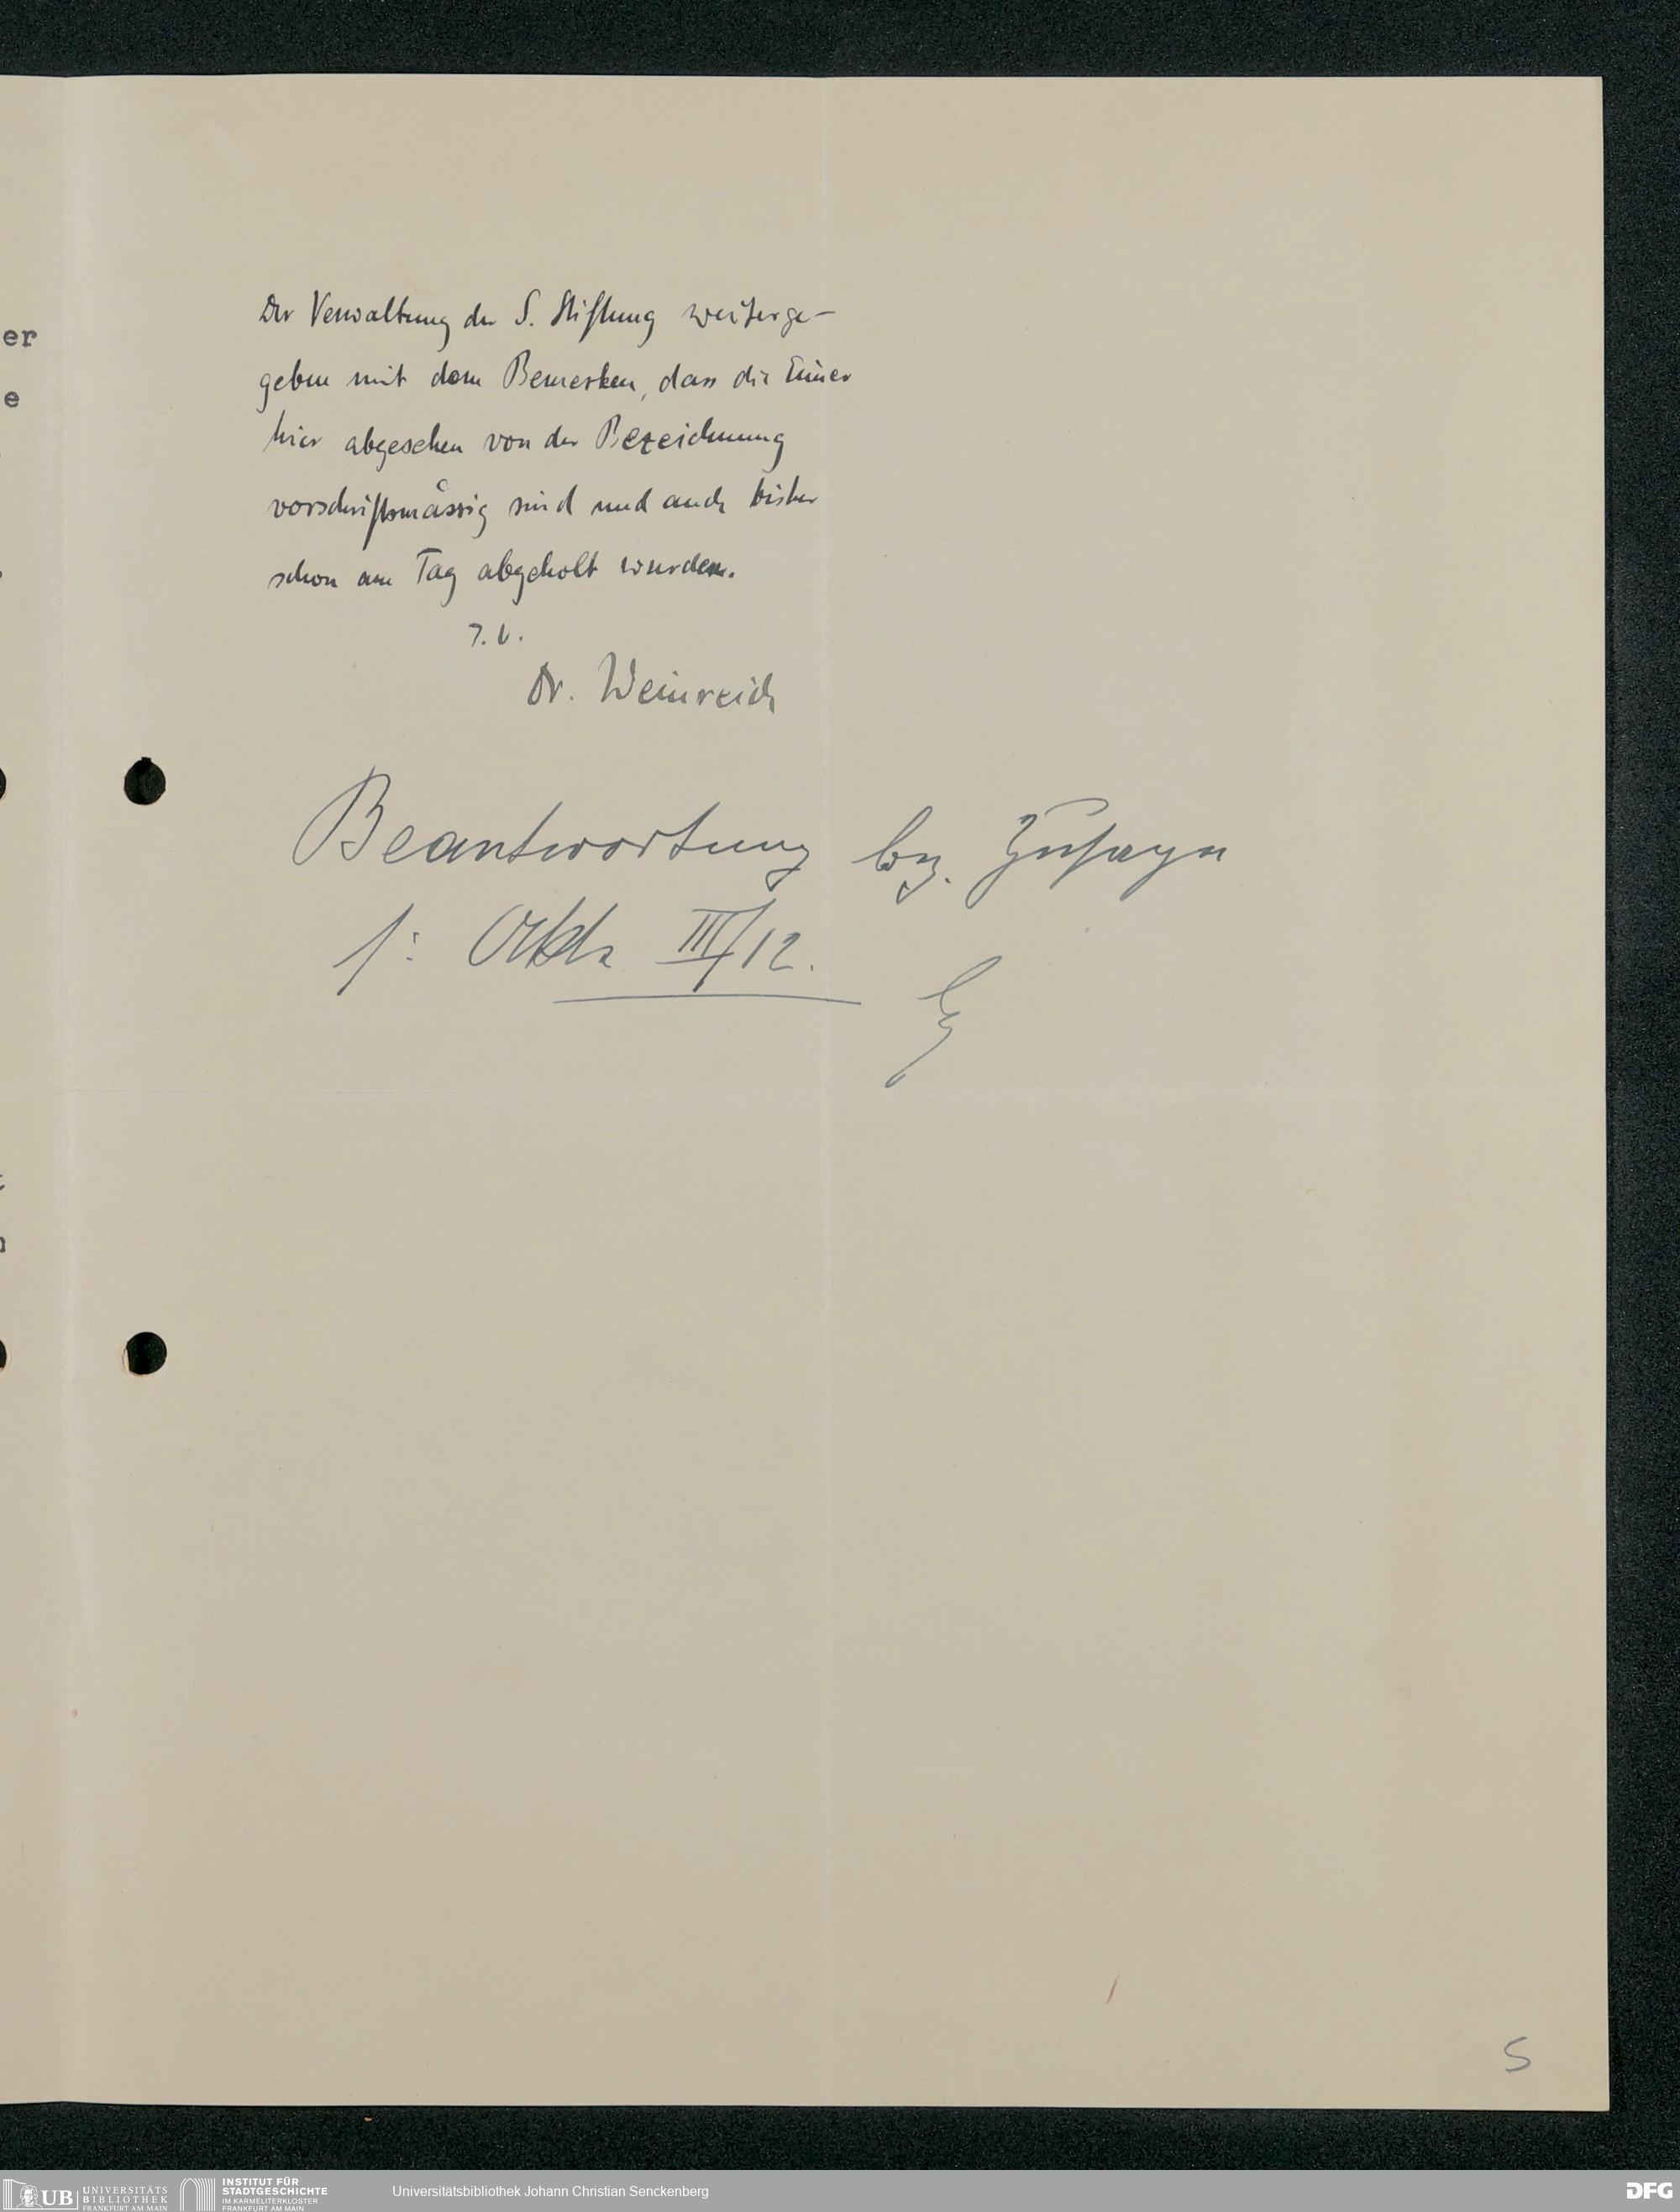 er
e
Der Verwaltung der S. Stiftung weiterge-
geben mit dem Bemerken, dass die Eimer
hier abgesehen von der Bezeichnung
vorschriftsmässig sind und auch bisher
schon am Tag abgeholt wurden.
J.V.
Dr. Weinreich
Beantwortung bez. Zusage
s: III/12.
5
UB UNIVERSITÄTS
BIBLIOTHEK
FRANKFURT AM MAIN
INSTITUT FÜR
STADTGESCHICHTE
IM KARMELITERKLOSTER
FRANKFURT AM MAIN
Universitätsbibliothek Johann Christian Senckenberg
DFG